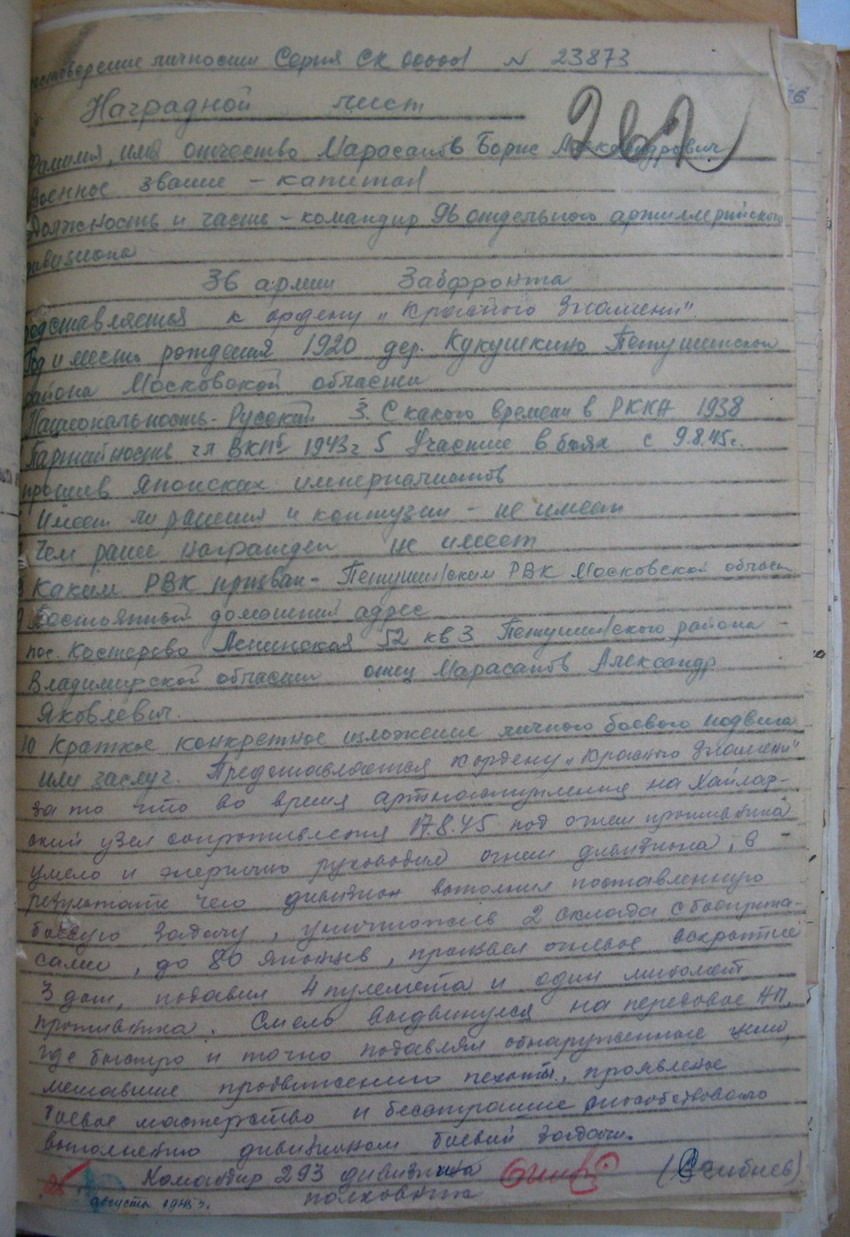 личности Серия СК № 23873
Наградной лист
262
Фамилия, имя отчество Марасанов Борис Александрович
Военное звание – капитан
Должность и часть – командир 96 отдельного артиллерийского
дивизиона
36 армии Забфронта
представляется к ордену „Красного Знамени"
Год и место рождения 1920 дер. Кукушкино Петушинского
района Московской области
Национальность - Русский 3. С какого времени в РККА 1938
Партийность чл ВКПб 1943 г 5 Участие в боях с 9.8.45 г.
против японских империалистов
Имеет ли ранения и контузии – не имеет
Чем ранее награжден не имеет
8 Каким РВК призван - Петушинским РВК Московской области
9 Постоянный домашний адрес
пос. Костерево Ленинская 52 кв 3 Петушинского района –
Владимирской области отец Марасанов Александр
Яковлевич.
10 Краткое конкретное изложение личного боевого подвига
или заслуг. Представляется к ордену „Красного Знамени"
за то что во время артнаступления на Хайлар-
ский узел сопротивления 17.8.45 под огнем противника
умело и энергично руководил огнем дивизиона, в –
результате чего дивизион выполнил поставленную
боевую задачу, уничтожив 2 склада с боеприпа-
сами, до 80 японцев, произвел огневое вскрытие
3 дот, подавил 4 пулемета и один миномет
противника. Смело выдвинулся на передовое НП,
где быстро и точно подавлял обнаруженные цели,
мешавшие продвижению пехоты, проявленое
боевое мастерство и бесстрашие способствовало
выполнению дивизионом боевой задачи.
Командир 293 дивизиона
полковник
августа 1945 г.